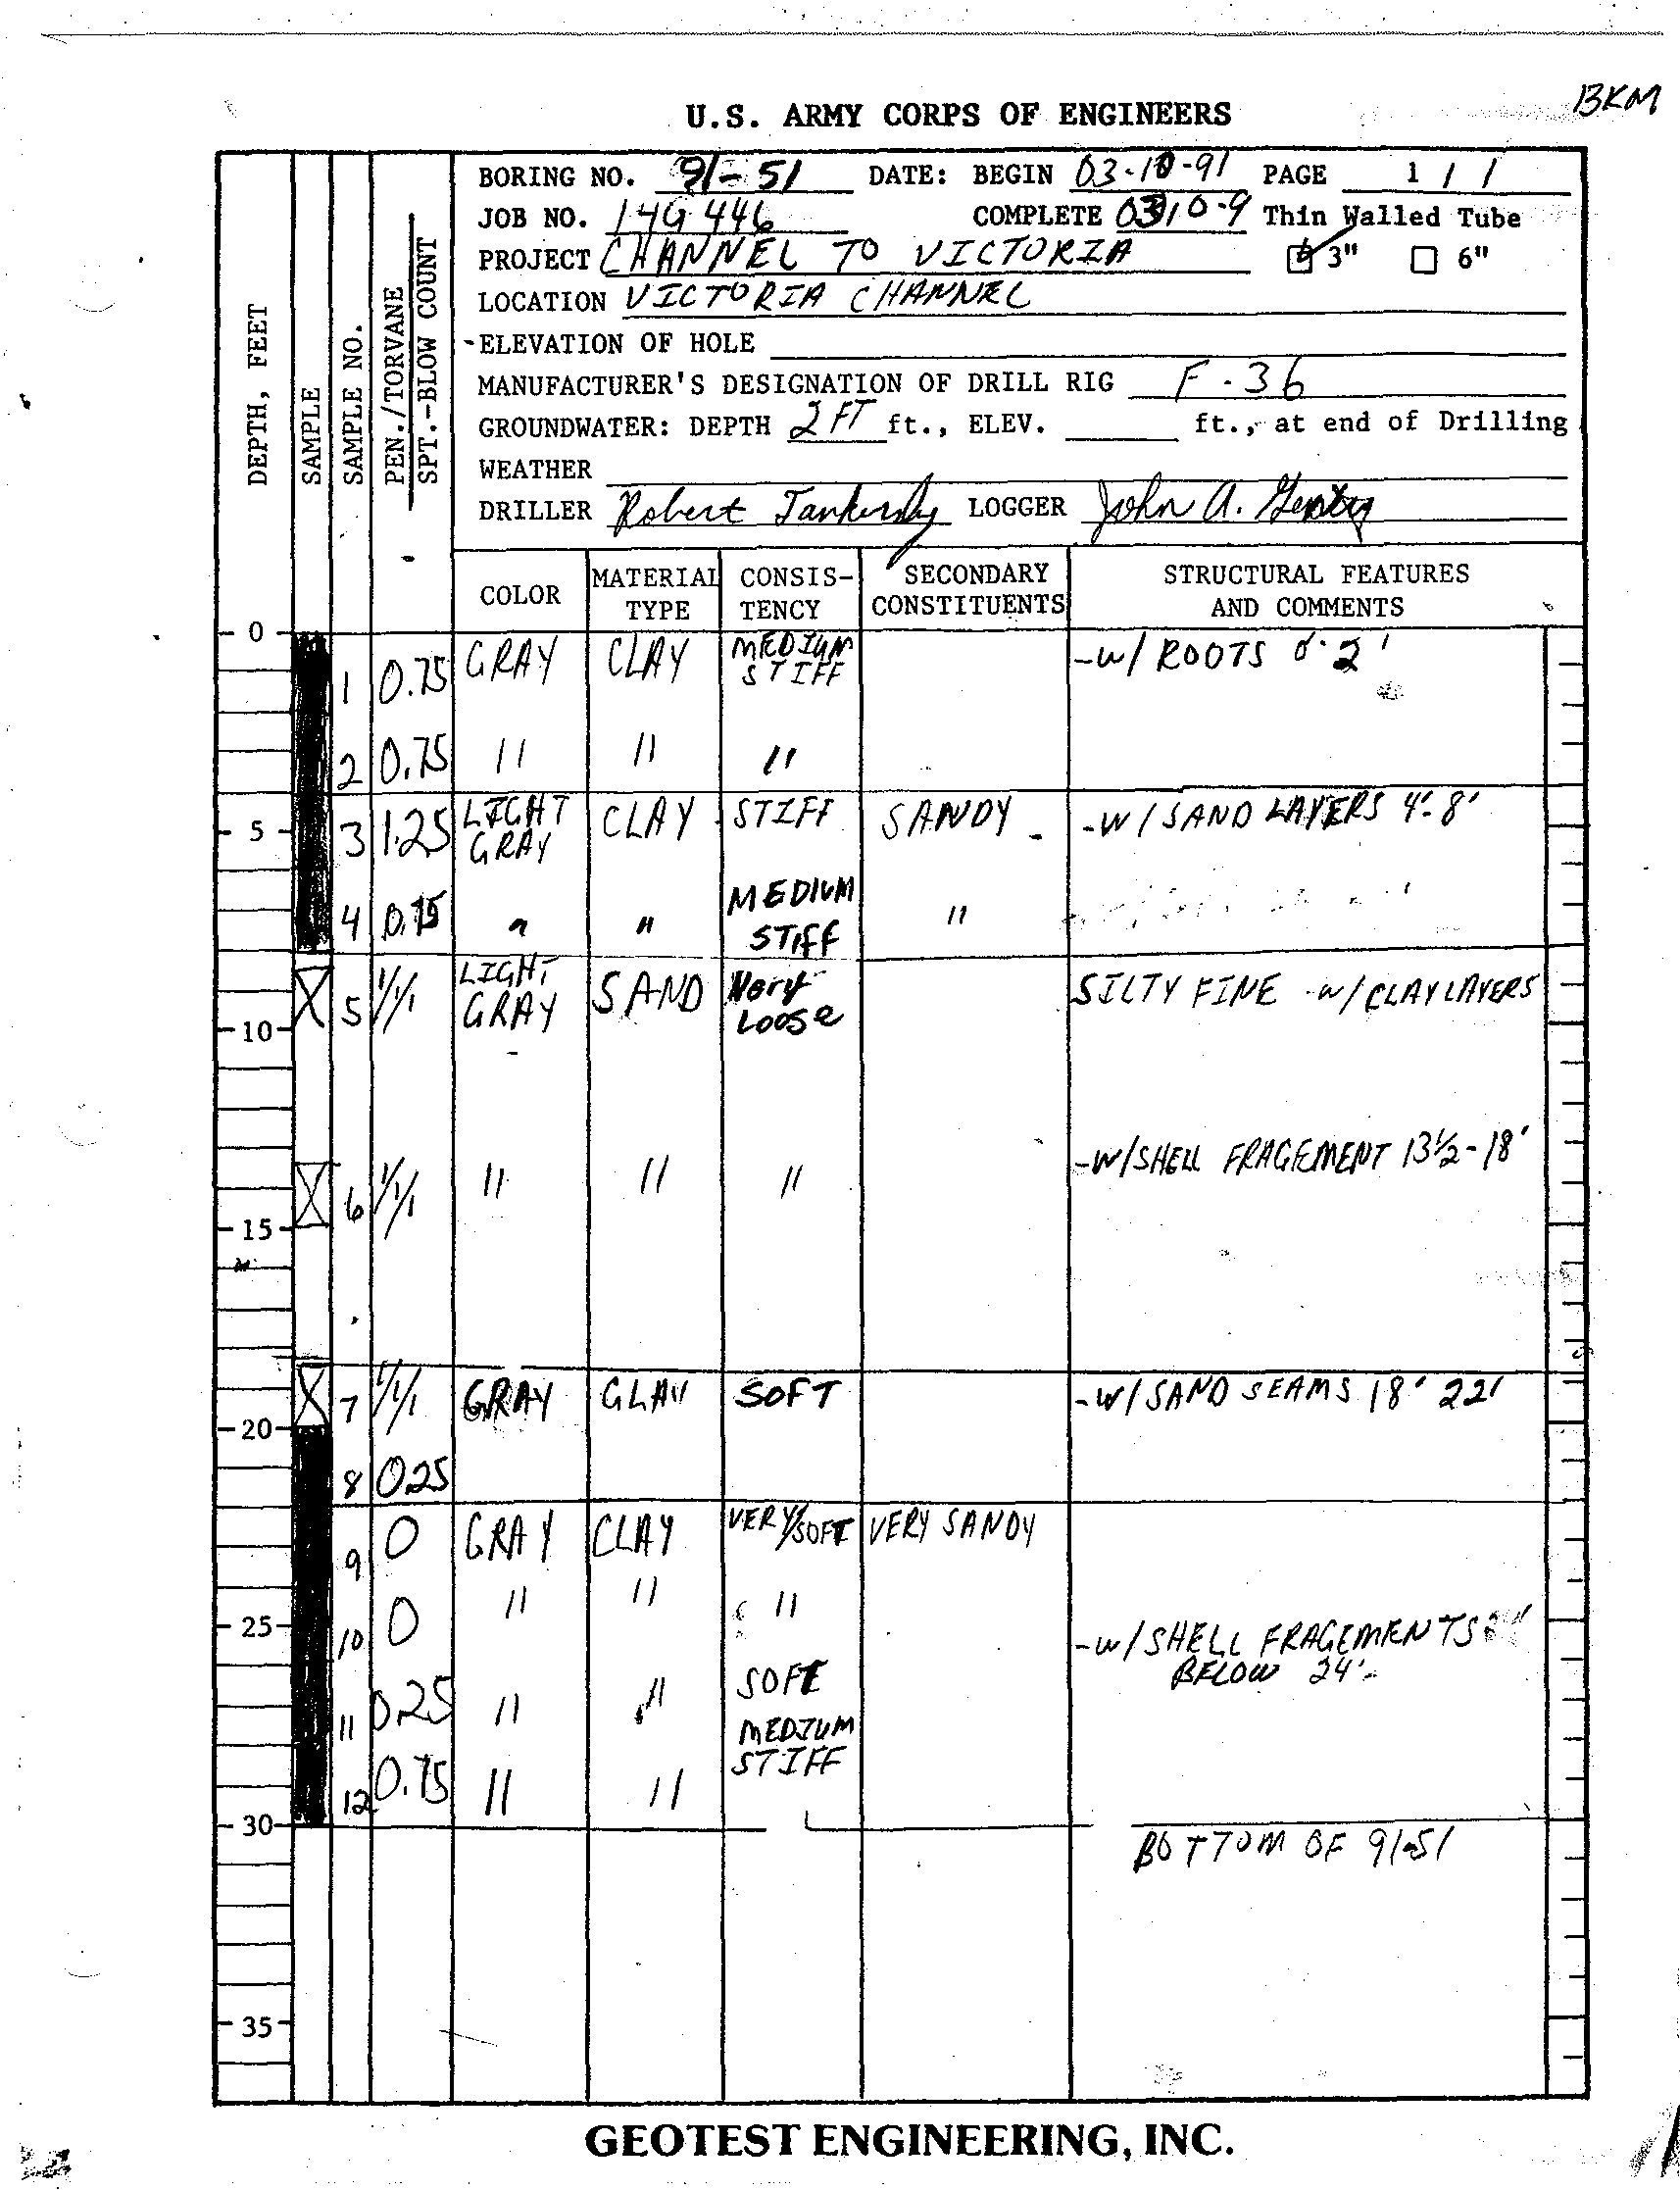 BKM
U.S. ARMY CORPS OF ENGINEERS
BORING NO. 91-51 DATE: BEGIN 03-10-91 PAGE 1 / 1
JOB NO. 14G446 COMPLETE 0310-9 Thin Walled Tube
PROJECT CHANNEL TO VICTORIA 3" 6"
LOCATION VICTORIA CHANNEL
ELEVATION OF HOLE
MANUFACTURER'S DESIGNATION OF DRILL RIG F-36
GROUNDWATER: DEPTH 2 FT ft., ELEV. ft., at end of Drilling
WEATHER
DRILLER Robert Tankersly LOGGER John A.
DEPTH, FEET
SAMPLE
SAMPLE NO.
PEN./TORVANE
SPT.-BLOW COUNT
COLOR MATERIAL TYPE CONSIS-TENCY SECONDARY CONSTITUENTS STRUCTURAL FEATURES AND COMMENTS
0
1 0.75 GRAY CLAY MEDIUM STIFF -W/ ROOTS 0-2'
2 0.75 " " "
5 3 1.25 LIGHT GRAY CLAY STIFF SANDY -W/SAND LAYERS 4'-8'
4 0.75 " " MEDIUM STIFF "
5 1/1/1 LIGHT GRAY SAND Very Loose SILTY FINE -W/CLAY LAYERS
10
-W/SHELL FRAGEMENT 13½-18'
6 1/1/1 " " "
15
7 1/1/1 GRAY CLAY SOFT -W/SAND SEAMS 18' 22'
20
8 025
9 0 GRAY CLAY VERY/SOFT VERY SANDY
10 0 " " "
25 -W/SHELL FRAGEMENTS
BELOW 24'-
11 0.25 " " SOFT
12 0.75 " " MEDIUM STIFF
30
BOTTOM OF 91-51
35
GEOTEST ENGINEERING, INC.